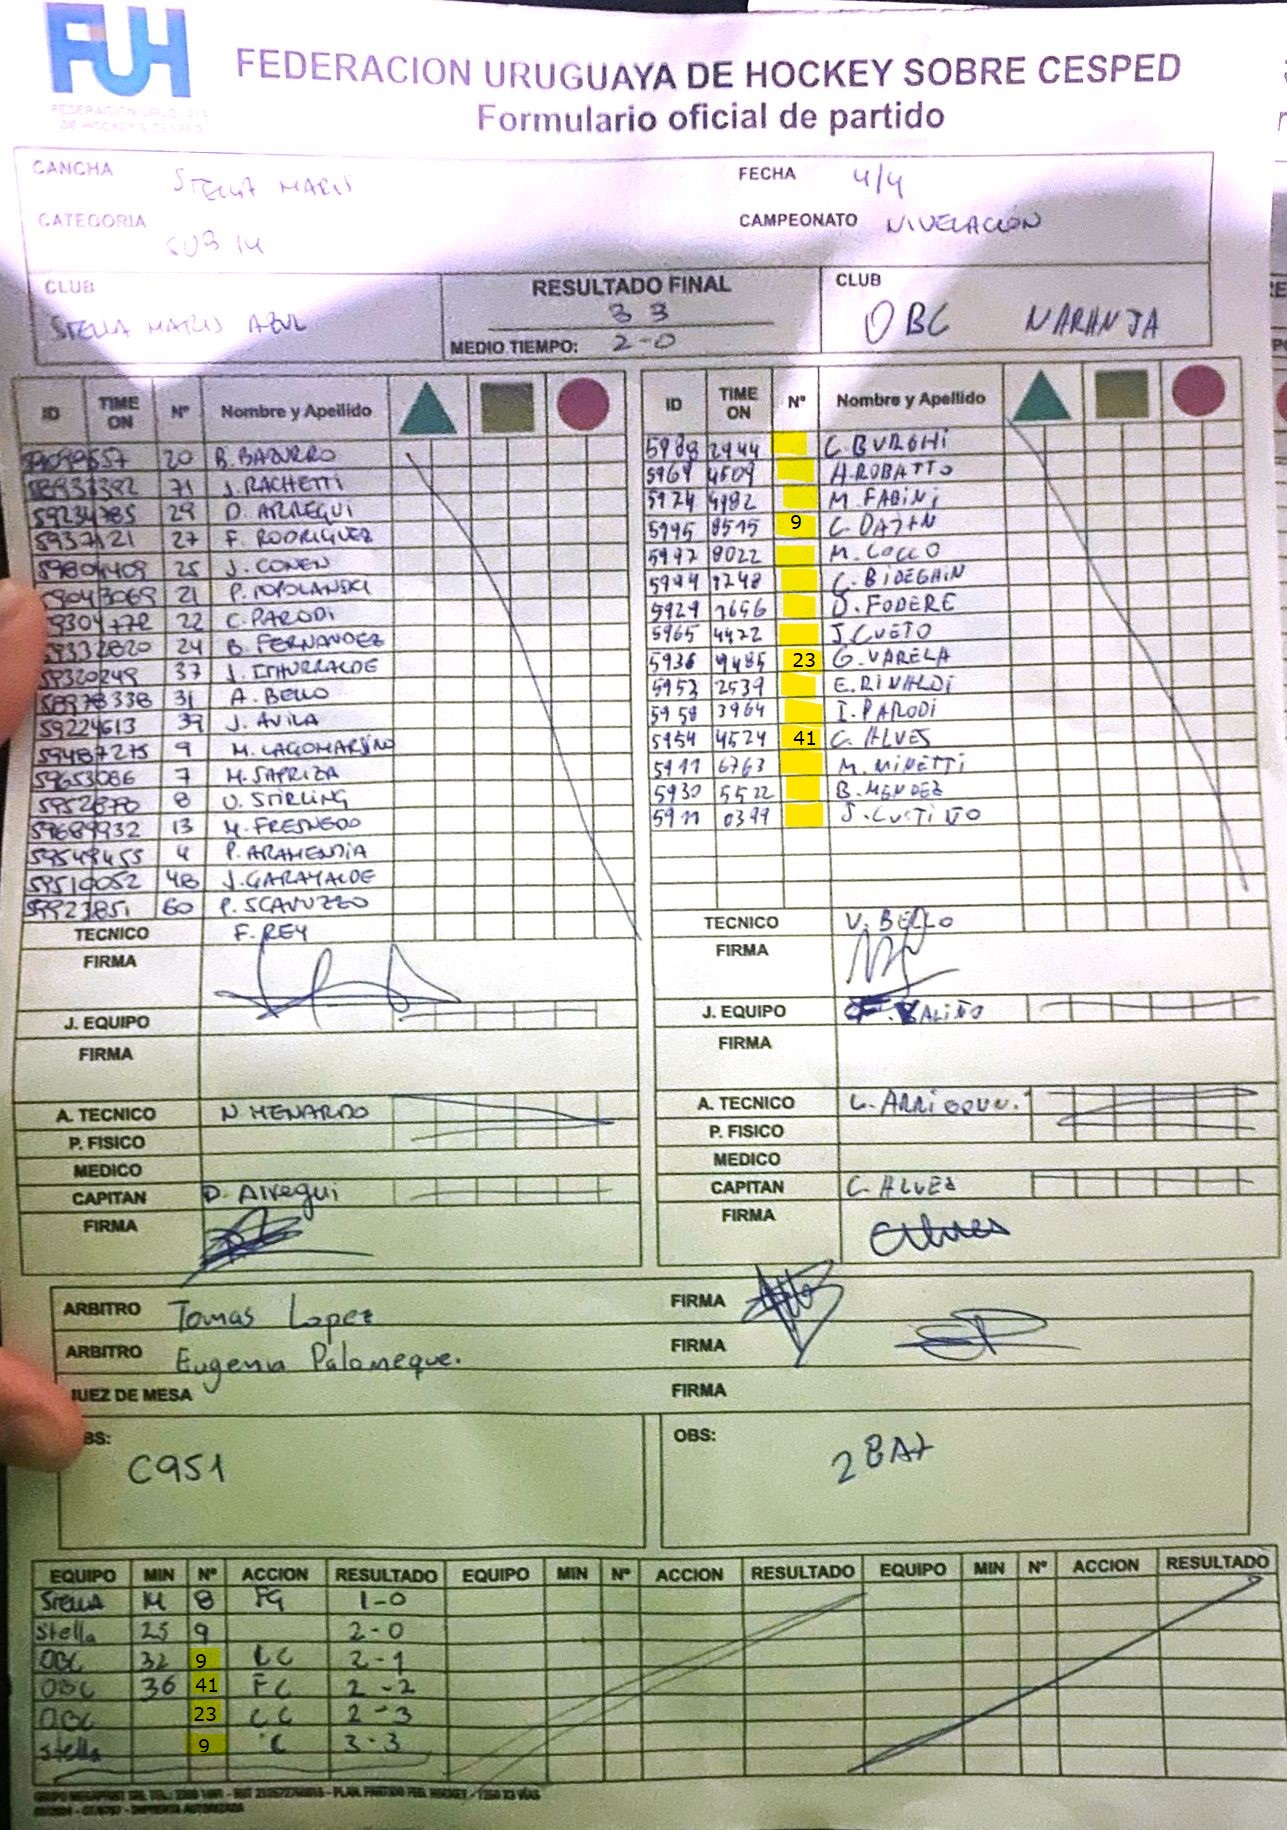 FUH
FEDERACION URUGUAYA
DE HOCKEY & CESPED
FEDERACION URUGUAYA DE HOCKEY SOBRE CESPED
Formulario oficial de partido
CANCHA STELLA MARIS FECHA 4/4
CATEGORIA SUB 14 CAMPEONATO NIVELACIÓN
CLUB STELLA MARIS AZUL
RESULTADO FINAL
3 3
MEDIO TIEMPO: 2-0
CLUB OBC NARANJA
ID TIME ON Nº Nombre y Apellido
20 B. BAZURRO
71 J. RACHETTI
29 D. ARREGUI
27 F. RODRIGUEZ
25 J. COHEN
21 P. TOPOLANSKI
22 C. PARODI
24 B. FERNANDEZ
37 J. ITHURRALDE
31 A. BELLO
59224613 39 J. AVILA
59487275 9 M. LAGOMARSINO
59653086 7 M. SAPRIZA
8 U. STIRLING
13 M. FRESNEDO
59549455 4 P. ARAMENDIA
59510052 48 J. GARAYALDE
59923851 60 P. SCAVUZZO
TECNICO F. REY
FIRMA
J. EQUIPO
FIRMA
A. TECNICO N. MENARDO
P. FISICO
MEDICO
CAPITAN D. Arregui
FIRMA
ID TIME ON Nº Nombre y Apellido
5989 2944 C. BURGHI
5961 4509 A. ROBATTO
5974 4982 M. FABINI
5995 8515 9 C. DAJAN
5997 8022 M. COCCO
5994 1748 C. BIDEGAIN
5929 7656 J. FODERE
5965 4472 J. CUETO
5936 9485 23 G. VARELA
5953 2539 E. RINALDI
5958 3964 I. PARODI
5954 4524 41 C. ALVES
5911 6763 M. MINETTI
5930 5522 B. MENDEZ
5911 0399
TECNICO V. BELLO
FIRMA
J. EQUIPO BALIÑO
FIRMA
A. TECNICO
P. FISICO
MEDICO
CAPITAN C. ALVES
FIRMA
ARBITRO Tomas Lopez FIRMA
ARBITRO Eugenia Palomeque. FIRMA
JUEZ DE MESA FIRMA
BS: C951
OBS: 2 BAJ
EQUIPO MIN Nº ACCION RESULTADO EQUIPO MIN Nº ACCION RESULTADO EQUIPO MIN Nº ACCION RESULTADO
STELLA 14 8 FG 1-0
Stella 25 9 2-0
OBC 32 9 CC 2-1
OBC 36 41 FC 2-2
OBC 23 CC 2-3
Stella 9 C 3-3